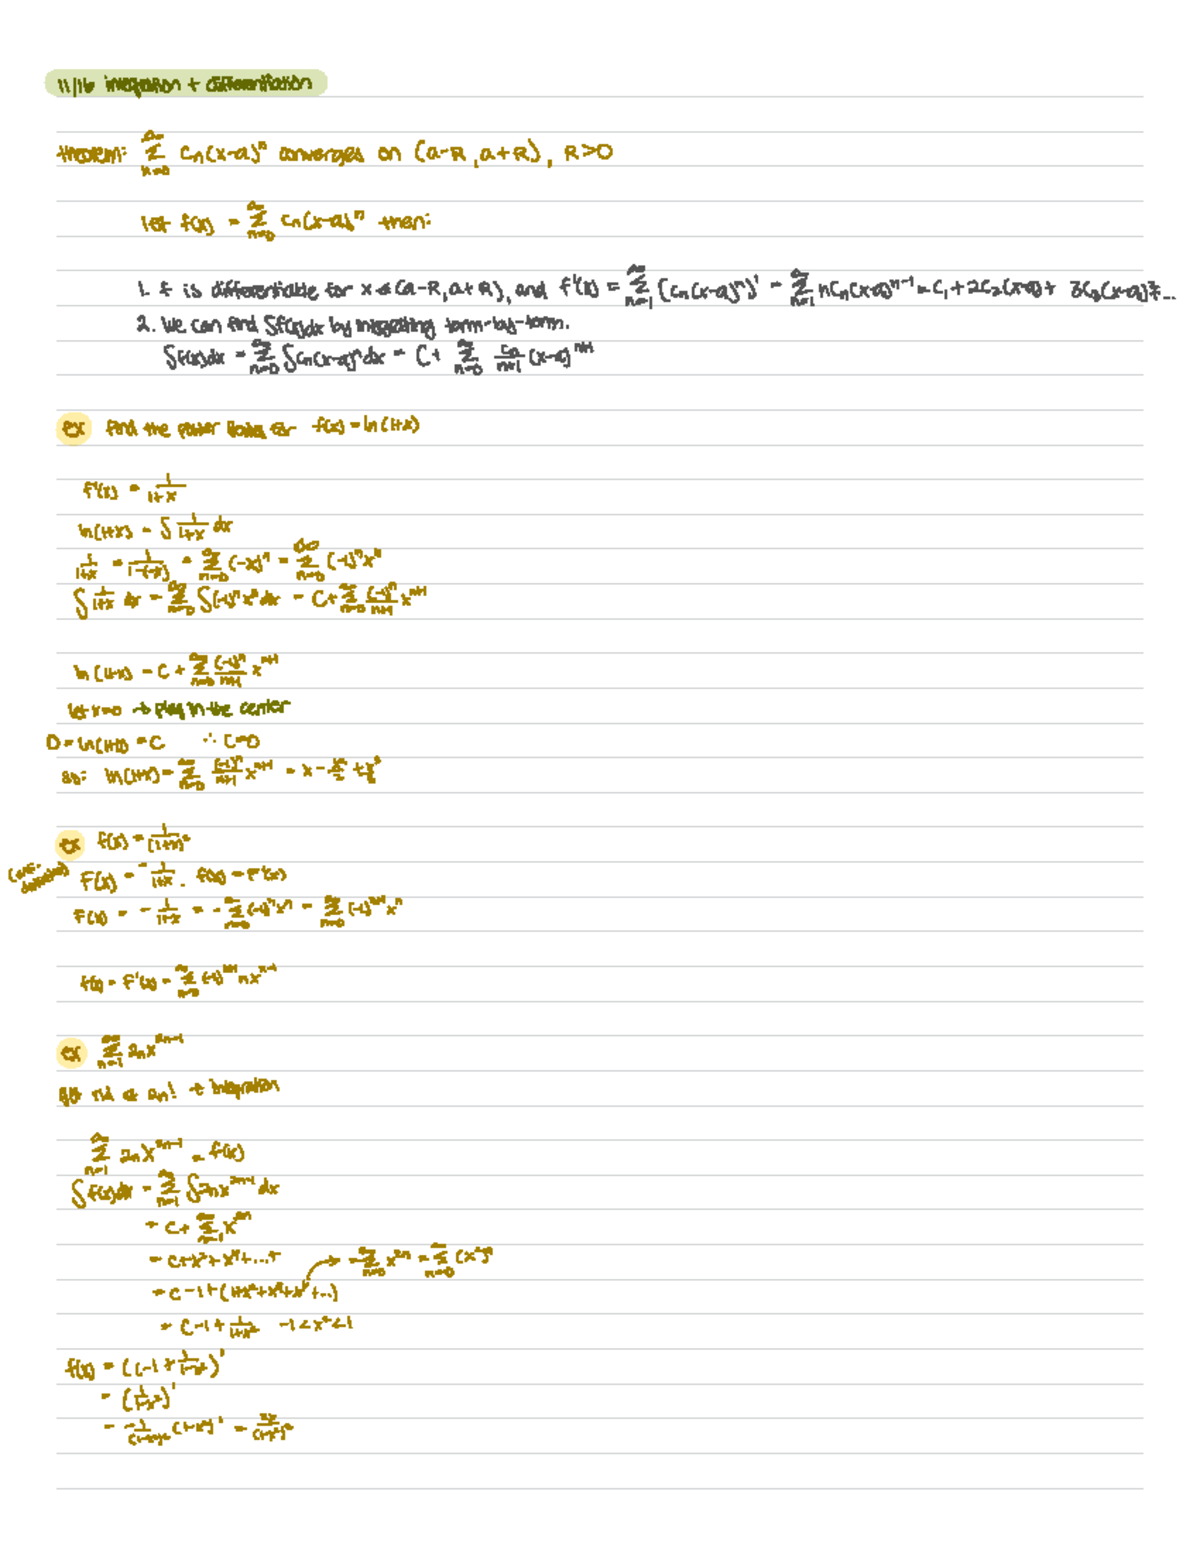 11/16 integration + differentiation
theorem: ∞ Σ n=0 Cn(x-a)^n converges on (a-R, a+R), R>0
let f(x) = ∞ Σ n=0 Cn(x-a)^n then:
1. f is differentiable for x ∈ (a-R, a+R), and f'(x) = ∞ Σ n=1 (Cn(x-a)^n)' = ∞ Σ n=1 nCn(x-a)^n-1 = C1 + 2C2(x-a) + 3C3(x-a)^2 + ...
2. We can find ∫f(x)dx by integrating term-by-term.
∫f(x)dx = ∞ Σ n=0 ∫Cn(x-a)^n dx = C + ∞ Σ n=0 Cn/n+1 (x-a)^n+1
ex find the power for f(x) = ln(1+x)
f'(x) = 1/1+x
ln(1+x) = ∫ 1/1+x dx
1/1+x = 1/1-(-x) = ∞ Σ n=0 (-x)^n = ∞ Σ n=0 (-1)^n x^n
∫ 1/1+x dx = ∞ Σ n=0 ∫(-1)^n x^n dx = C + ∞ Σ n=0 (-1)^n/n+1 x^n+1
ln(1+x) = C + ∞ Σ n=0 (-1)^n/n+1 x^n+1
let x=0 → plug in the center
0 = ln(1+0) = C ∴ C=0
so: ln(1+x) = ∞ Σ n=0 (-1)^n/n+1 x^n+1 = x -
ex f(x) = 1/(1+x)^2
F(x) = -1/1+x . f(x) = F'(x)
F(x) = - 1/1+x = - ∞ Σ n=0 (-1)^n x^n = ∞ Σ n=0 (-1)^n+1 x^n
f(x) = F'(x) = ∞ Σ n=0 (-1)^n+1 nx^n-1
ex ∞ Σ n=1 2nx^2n-1
get rid of 2n! → integration
∞ Σ n=1 2nx^2n-1 = f(x)
∫f(x)dx = ∞ Σ n=1 ∫2nx^2n-1 dx
= C + ∞ Σ n=1 x^2n
= C + x^2 + x^4 + ... + → = ∞ Σ n=0 x^2n = ∞ Σ n=0 (x^2)^n
= C - 1 + (1 + x^2 + x^4 + x^6 + ...)
= C - 1 + 1/1-x^2 -1 < x^2 < 1
f(x) = (C - 1 + 1/1-x^2)'
= (1/1-x^2)'
= -1/(1-x^2)^2 (1-x^2)' = 2x/(1-x^2)^2